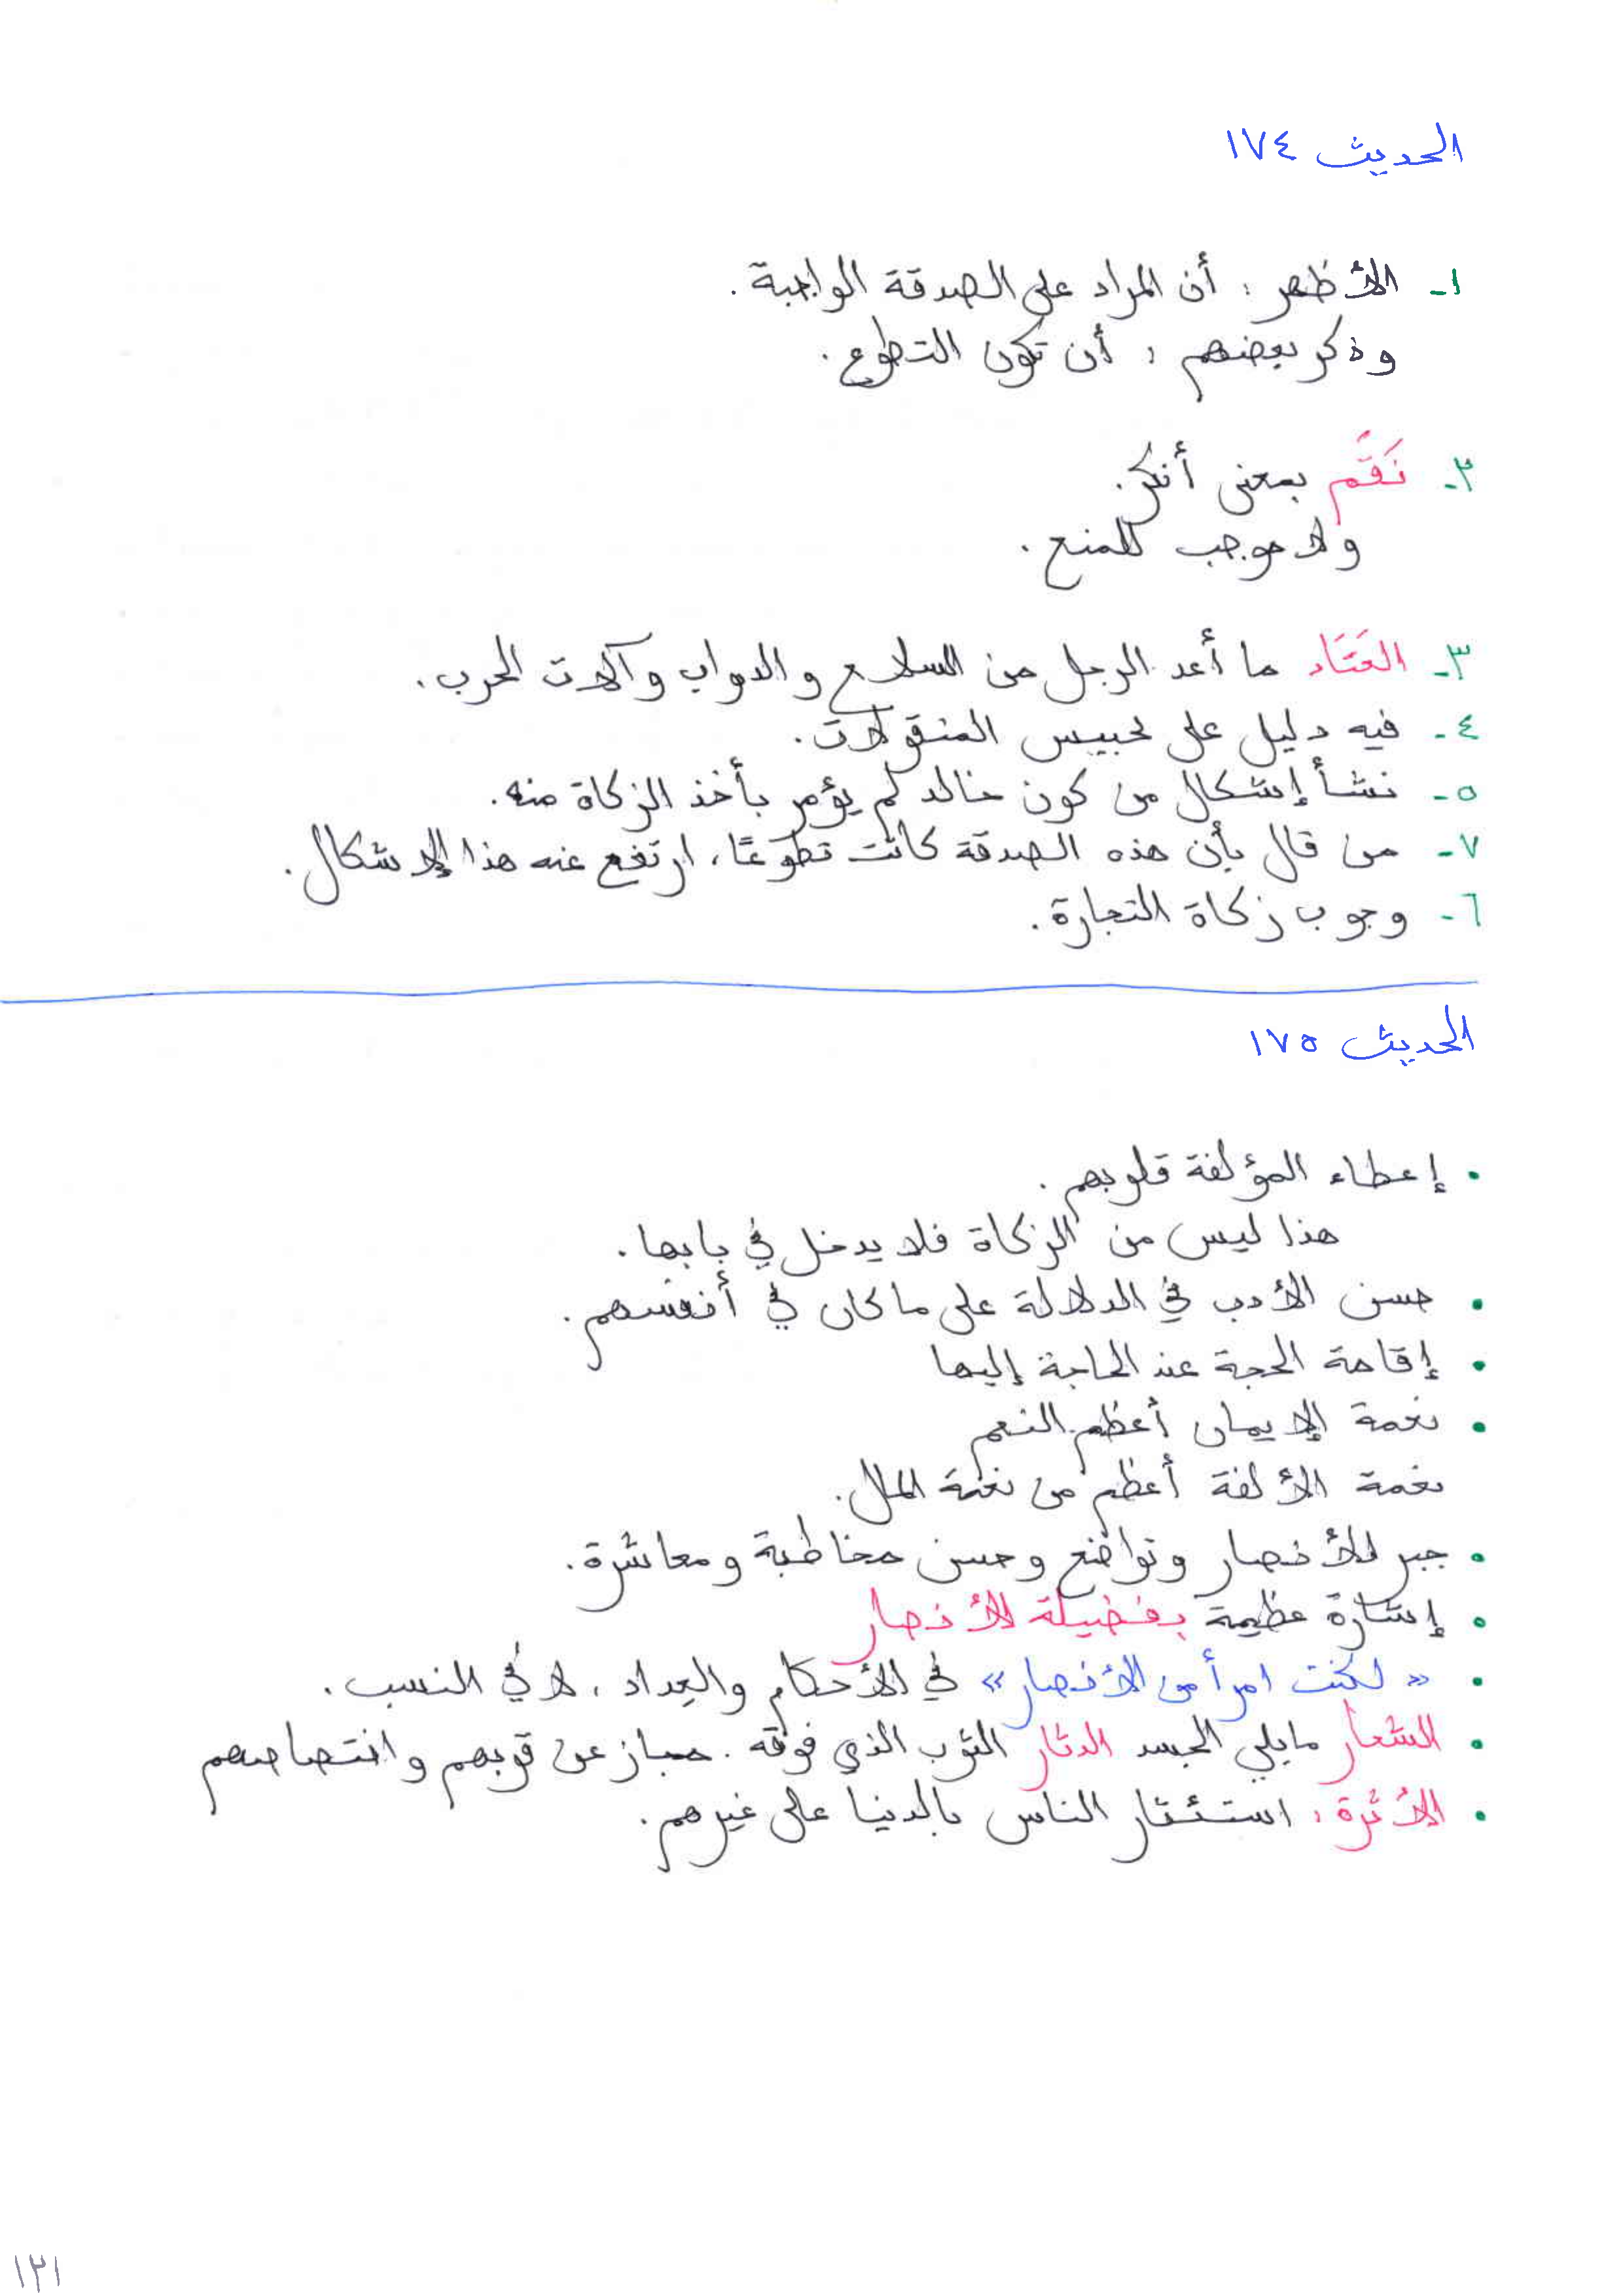 الحديث ١٧٤
١- الأظهر: أن المراد على الصدقة الواجبة.
وذكر بعضهم: أن تكون التطوع.
٢- نَقَم بمعنى أنكر.
ولا موجب للمنع.
٣- العَتَاد ما أعد الرجل من السلاح والدواب وآلات الحرب.
٤- فيه دليل على تحبيس المنقولات.
٥- نشأ إشكال من كون خالد لم يؤمر بأخذ الزكاة منه.
٧- من قال بأن هذه الصدقة كانت تطوعًا، ارتفع عنه هذا الإشكال.
٦- وجوب زكاة التجارة.
الحديث ١٧٥
• إعطاء المؤلفة قلوبهم.
هذا ليس من الزكاة فلا يدخل في بابها.
• حسن الأدب في الدلالة على ما كان في أنفسهم.
• إقامة الحجة عند الحاجة إليها
• نعمة الإيمان أعظم النعم
نعمة الألفة أعظم من نعمة المال.
• جبر للأنصار وتواضع وحسن مخاطبة ومعاشرة.
• إشارة عظيمة بفضيلة الأنصار
• «لكنت امرأ من الأنصار» في الأحكام والعِداد، لا في النسب.
• الشعار ما يلي الجسد الدثار الثوب الذي فوقه. مجاز عن قربهم واختصاصهم
• الأثرة: استئثار الناس بالدنيا على غيرهم.
١٢١